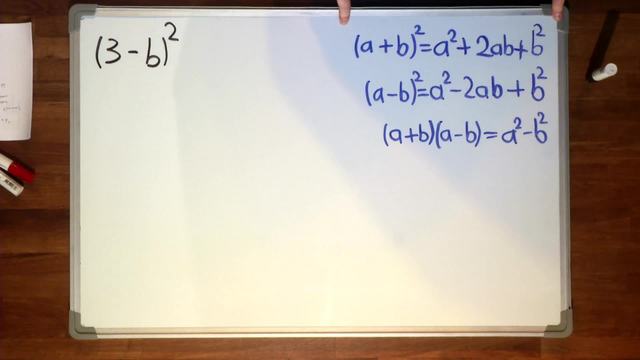 (3-b)²
(a+b)²=a²+2ab+b²
(a-b)²=a²-2ab+b²
(a+b)(a-b)=a²-b²